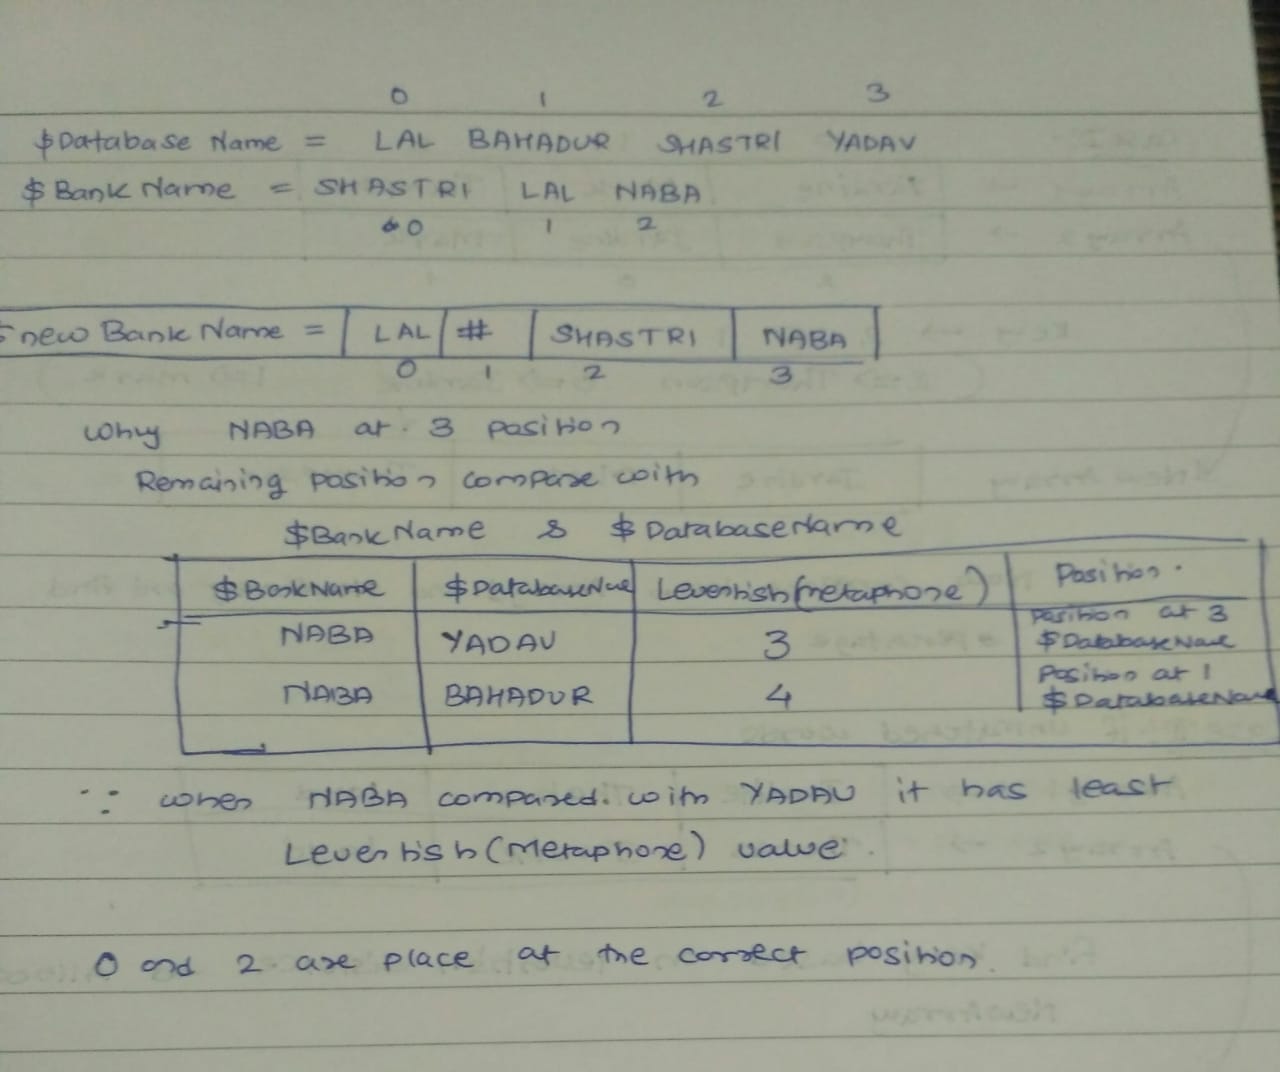 0 1 2 3
$Database Name = LAL BAHADUR SHASTRI YADAV
$Bank Name = SHASTRI LAL NABA
0 1 2
$new Bank Name = LAL # SHASTRI NABA
0 1 2 3
Why NABA at 3 position
Remaining position compare with
$BankName & $DatabaseName
$BankName $DatabaseName Levenhish(metaphone) Position.
NABA YADAV 3 Position at 3 $DatabaseName
NABA BAHADUR 4 Position at 1 $DatabaseName
∵ when NABA compared. with YADAV it has least
Levenhish(Metaphone) value.
0 and 2 are place at the correct position.